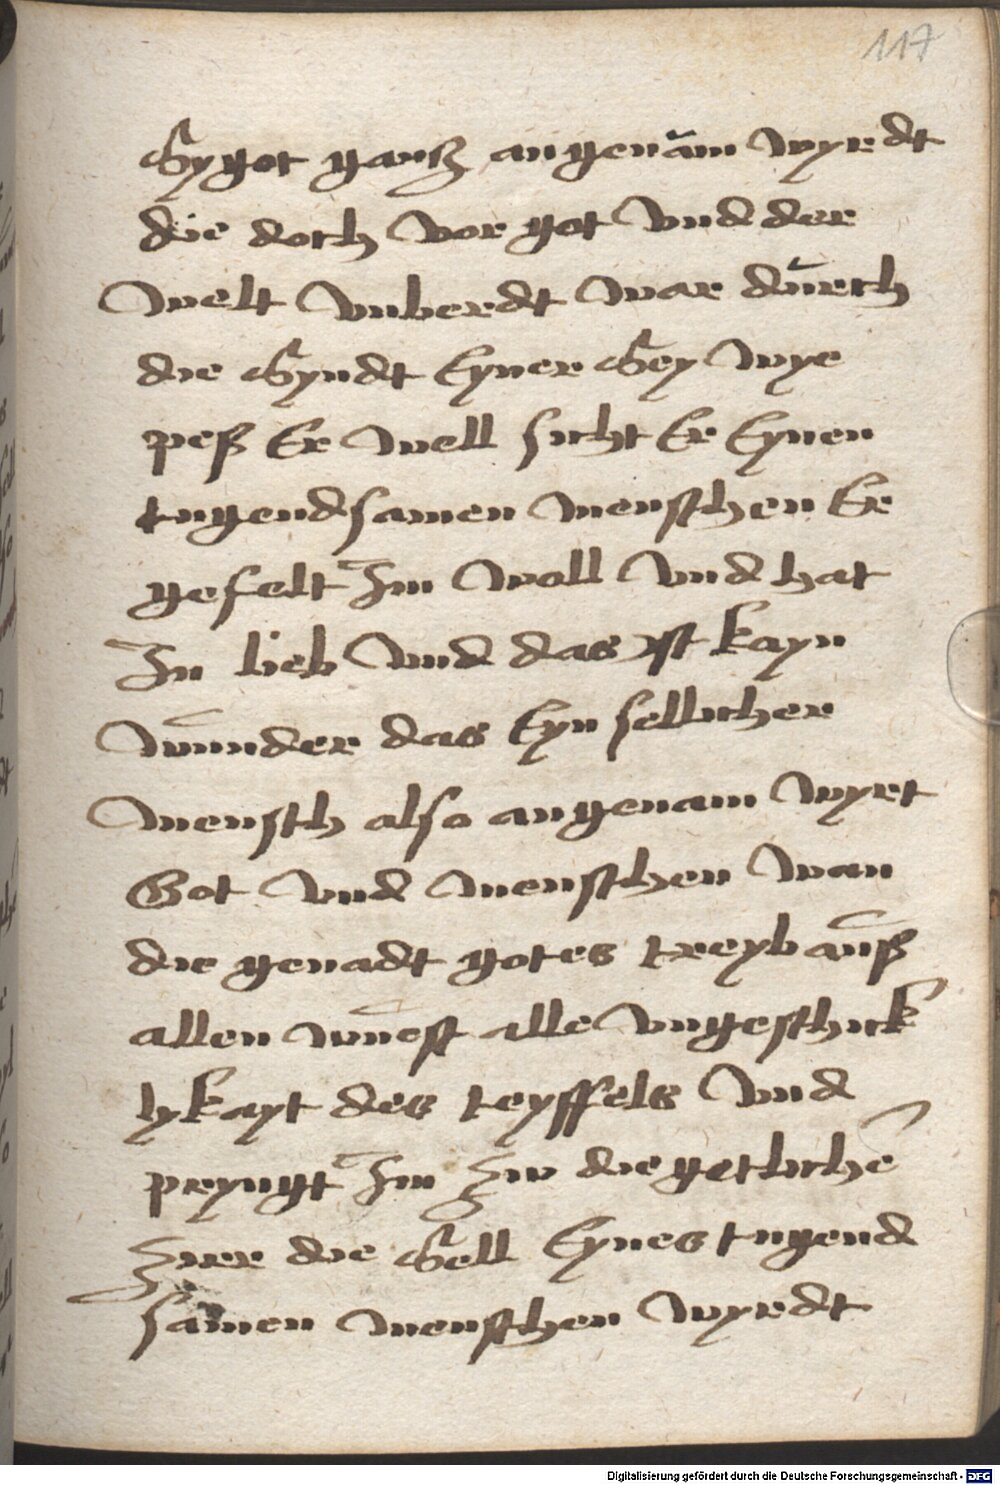 117
Sy got gancz angenäm wyrdt
die doch vor got vnd der
welt vnberdt war dürch
die Syndt Eyner Sey wye
peß Er well sicht Er Eynen
tugendsamen menschen Er
gefelt Im woll vnd hat
In lieb vnd das yst kayn
wunder das Eyn sellicher
mensch also angenam wyrt
Got vnd menschen wan
die genadt gotes treyb auß
allen wuest alle vngeschick
lykayt des teyffels vnd
pryngt Im Zw die getliche
Zier die Sell Eynes tugend
samen menschen wyrdt
Digitalisierung gefördert durch die Deutsche Forschungsgemeinschaft - DFG